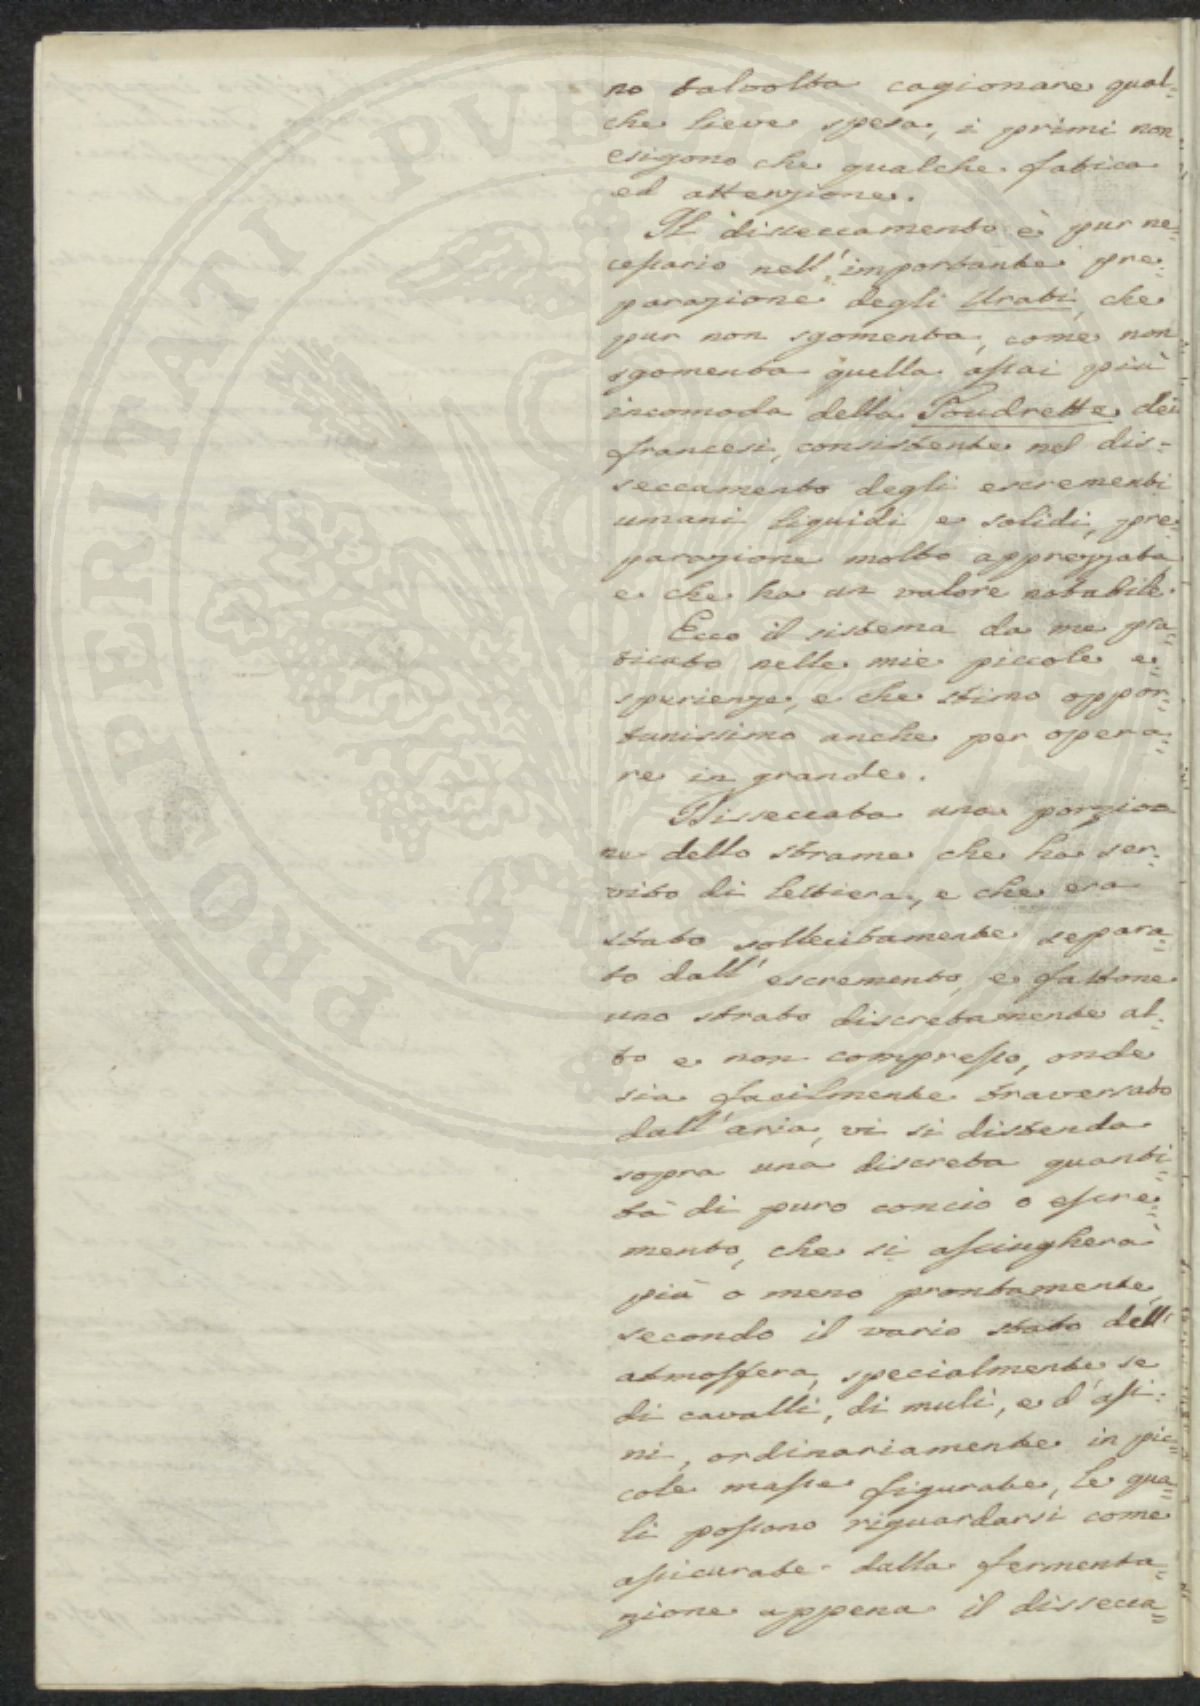 no talvolta cagionare qual=
che lieve spesa, i primi non
esigono che qualche fatica
ed attenzione.
Il disseccamento è pur ne=
cessario nell'importante pre=
parazione degli Urati, che
pur non sgomenta, come non
sgomenta quella assai più
incomoda della Poudrette dei
francesi, consistente nel dis=
seccamento degli escrementi
umani liquidi e solidi, pre=
parazione molto apprezzata
e che ha un valore notabile.
Ecco il sistema da me pra=
ticato nelle mie piccole e=
sperienze, e che stimo oppor=
tunissimo anche per opera=
re in grande.
Disseccata una porzio
ne dello strame che ha ser=
vito di lettiera, e che era
stato sollecitamente separa=
to dall'escremento, e fattone
uno strato discretamente al=
to e non compresso, onde
sia facilmente traversato
dall'aria, vi si distenda
sopra una discreta quanti=
tà di puro concio o escre=
mento, che si asciugherà
più o meno prontamente
secondo il vario stato dell'
atmosfera, specialmente se
di cavalli, di muli, e d'asi=
ni, ordinariamente in pic=
cole masse figurate, le qua=
li possono riguardarsi come
assicurate dalla fermenta=
zione appena il dissecca=
PROSPERITATI PVBLICAE AVGENDAE